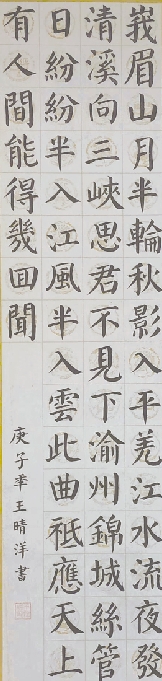 峩眉山月半輪秋影入平羌江水流夜發
清溪向三峽思君不見下渝州錦城絲管
日紛紛半入江風半入雲此曲祗應天上
有人間能得幾回聞
庚子年王晴洋書